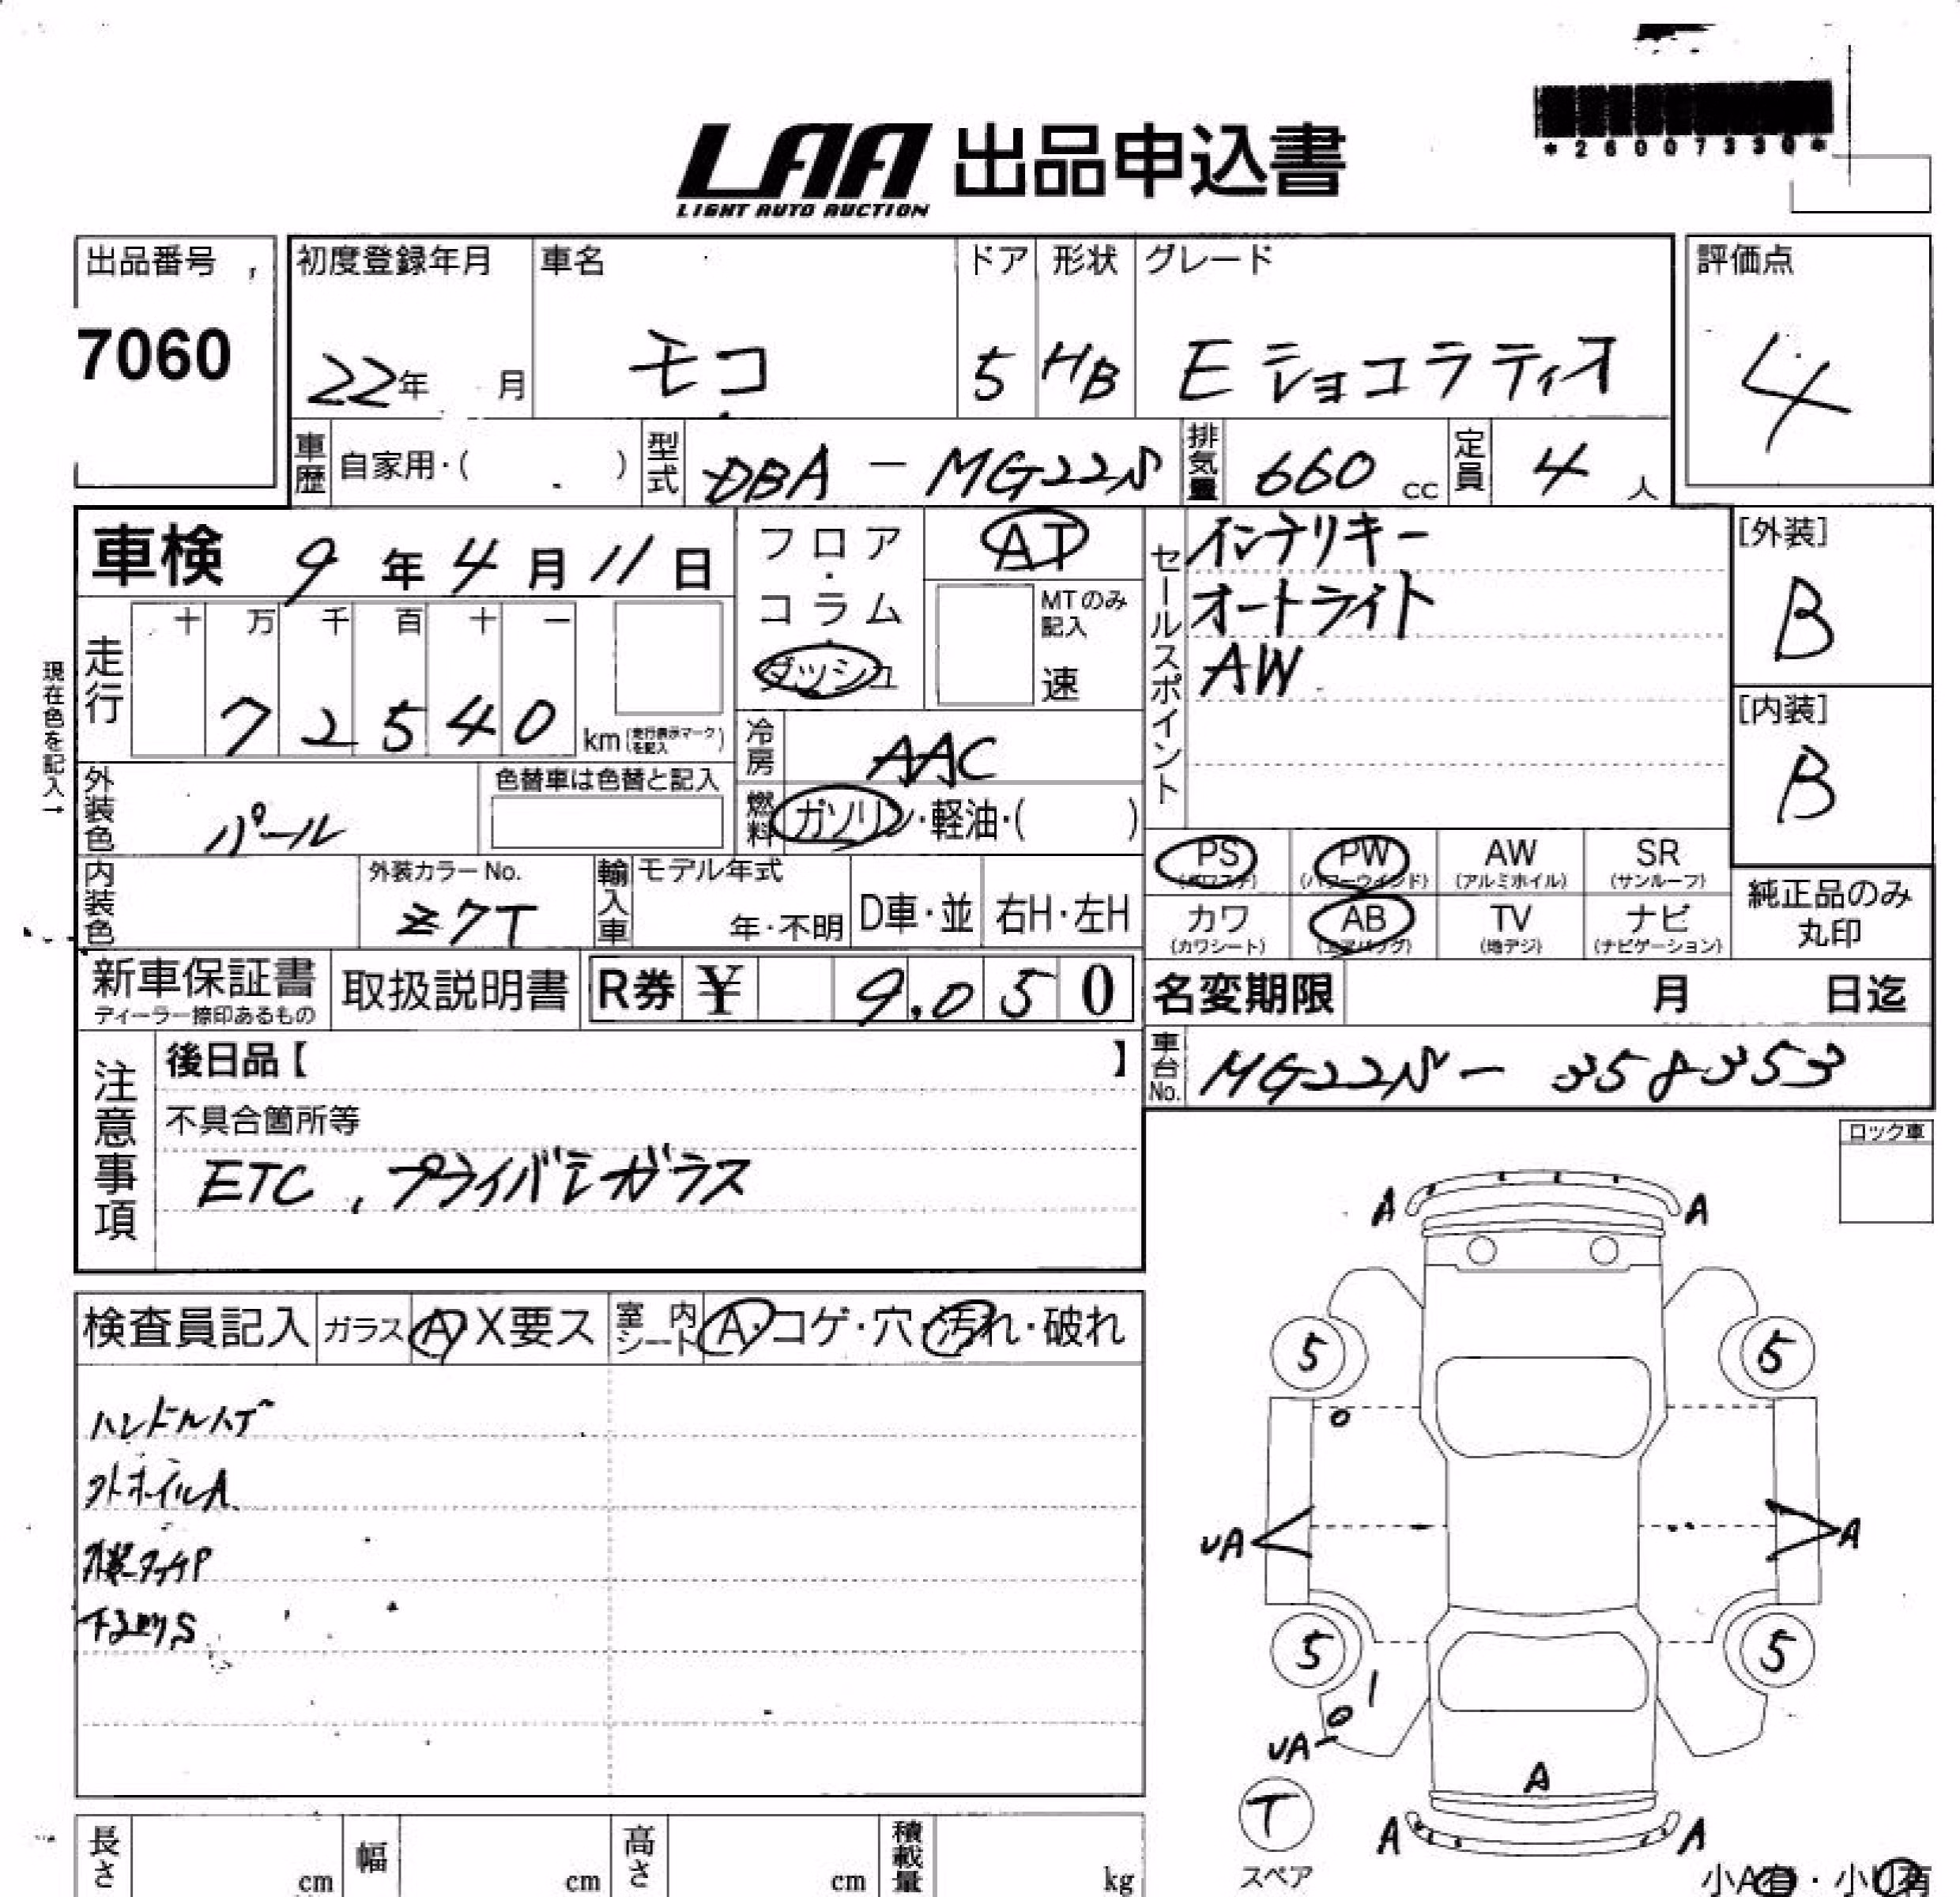 *26007330*
LAA 出品申込書
LIGHT AUTO AUCTION
出品番号 初度登録年月 車名 ドア 形状 グレード 評価点
7060 22年 月 モコ 5 HB E ショコラティオ 4
車歴 自家用・( ) 型式 DBA-MG22S 排気量 660 cc 定員 4 人
車検 9年4月11日 フロア・コラム・ダッシュ AT
MTのみ記入 速
セールスポイント
インテリキー
オートライト
AW
[外装] B
[内装] B
現在色を記入→
走行 十 万 千 百 十 一
7 2 5 4 0 km (走行表示マークを記入)
冷房 AAC
外装色 パール 色替車は色替と記入
燃料 ガソリン・軽油・( )
PS (パワステ) PW (パワーウインド) AW (アルミホイル) SR (サンルーフ)
カワ (カワシート) AB (エアバッグ) TV (地デジ) ナビ (ナビゲーション)
純正品のみ丸印
内装色 外装カラーNo. Z7T 輸入車 モデル年式 年・不明 D車・並 右H・左H
新車保証書 取扱説明書 R券 ¥ 9,050
ディーラー捺印あるもの
名変期限 月 日迄
車台No. MG22S-358353
注意事項
後日品【 】
不具合箇所等
ETC、プライバシーガラス
ロック車
検査員記入 ガラス A X要ス 室内シート A・コゲ・穴・汚れ・破れ
ハンドルハゲ
外ホイルA
タッチP
S
A A
5 5
UA A
5 5
UA
A
T
A A
スペア
小A有・小U有
長さ cm 幅 cm 高さ cm 積載量 kg